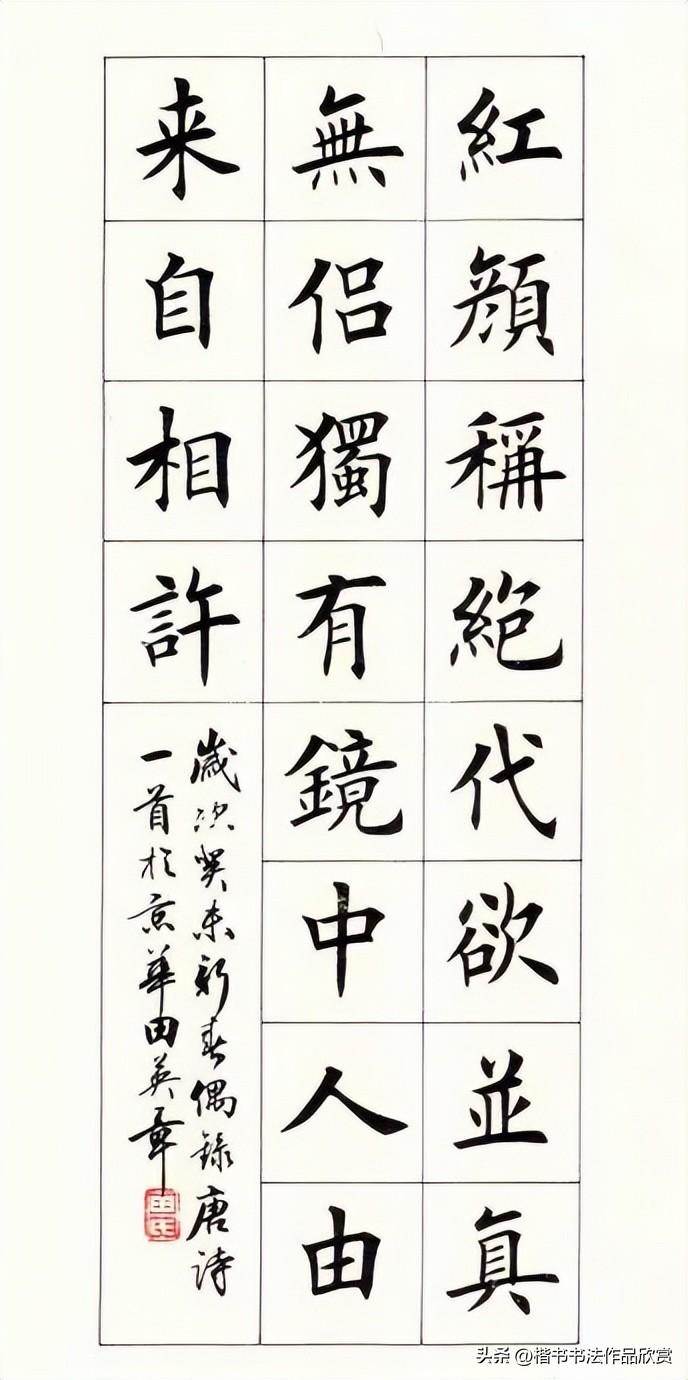 紅顔稱絕代欲並真
無侣獨有鏡中人由
来自相許
歲次癸未新春偶錄唐詩
一首於京華田英章
田氏
头条 @楷书书法作品欣赏